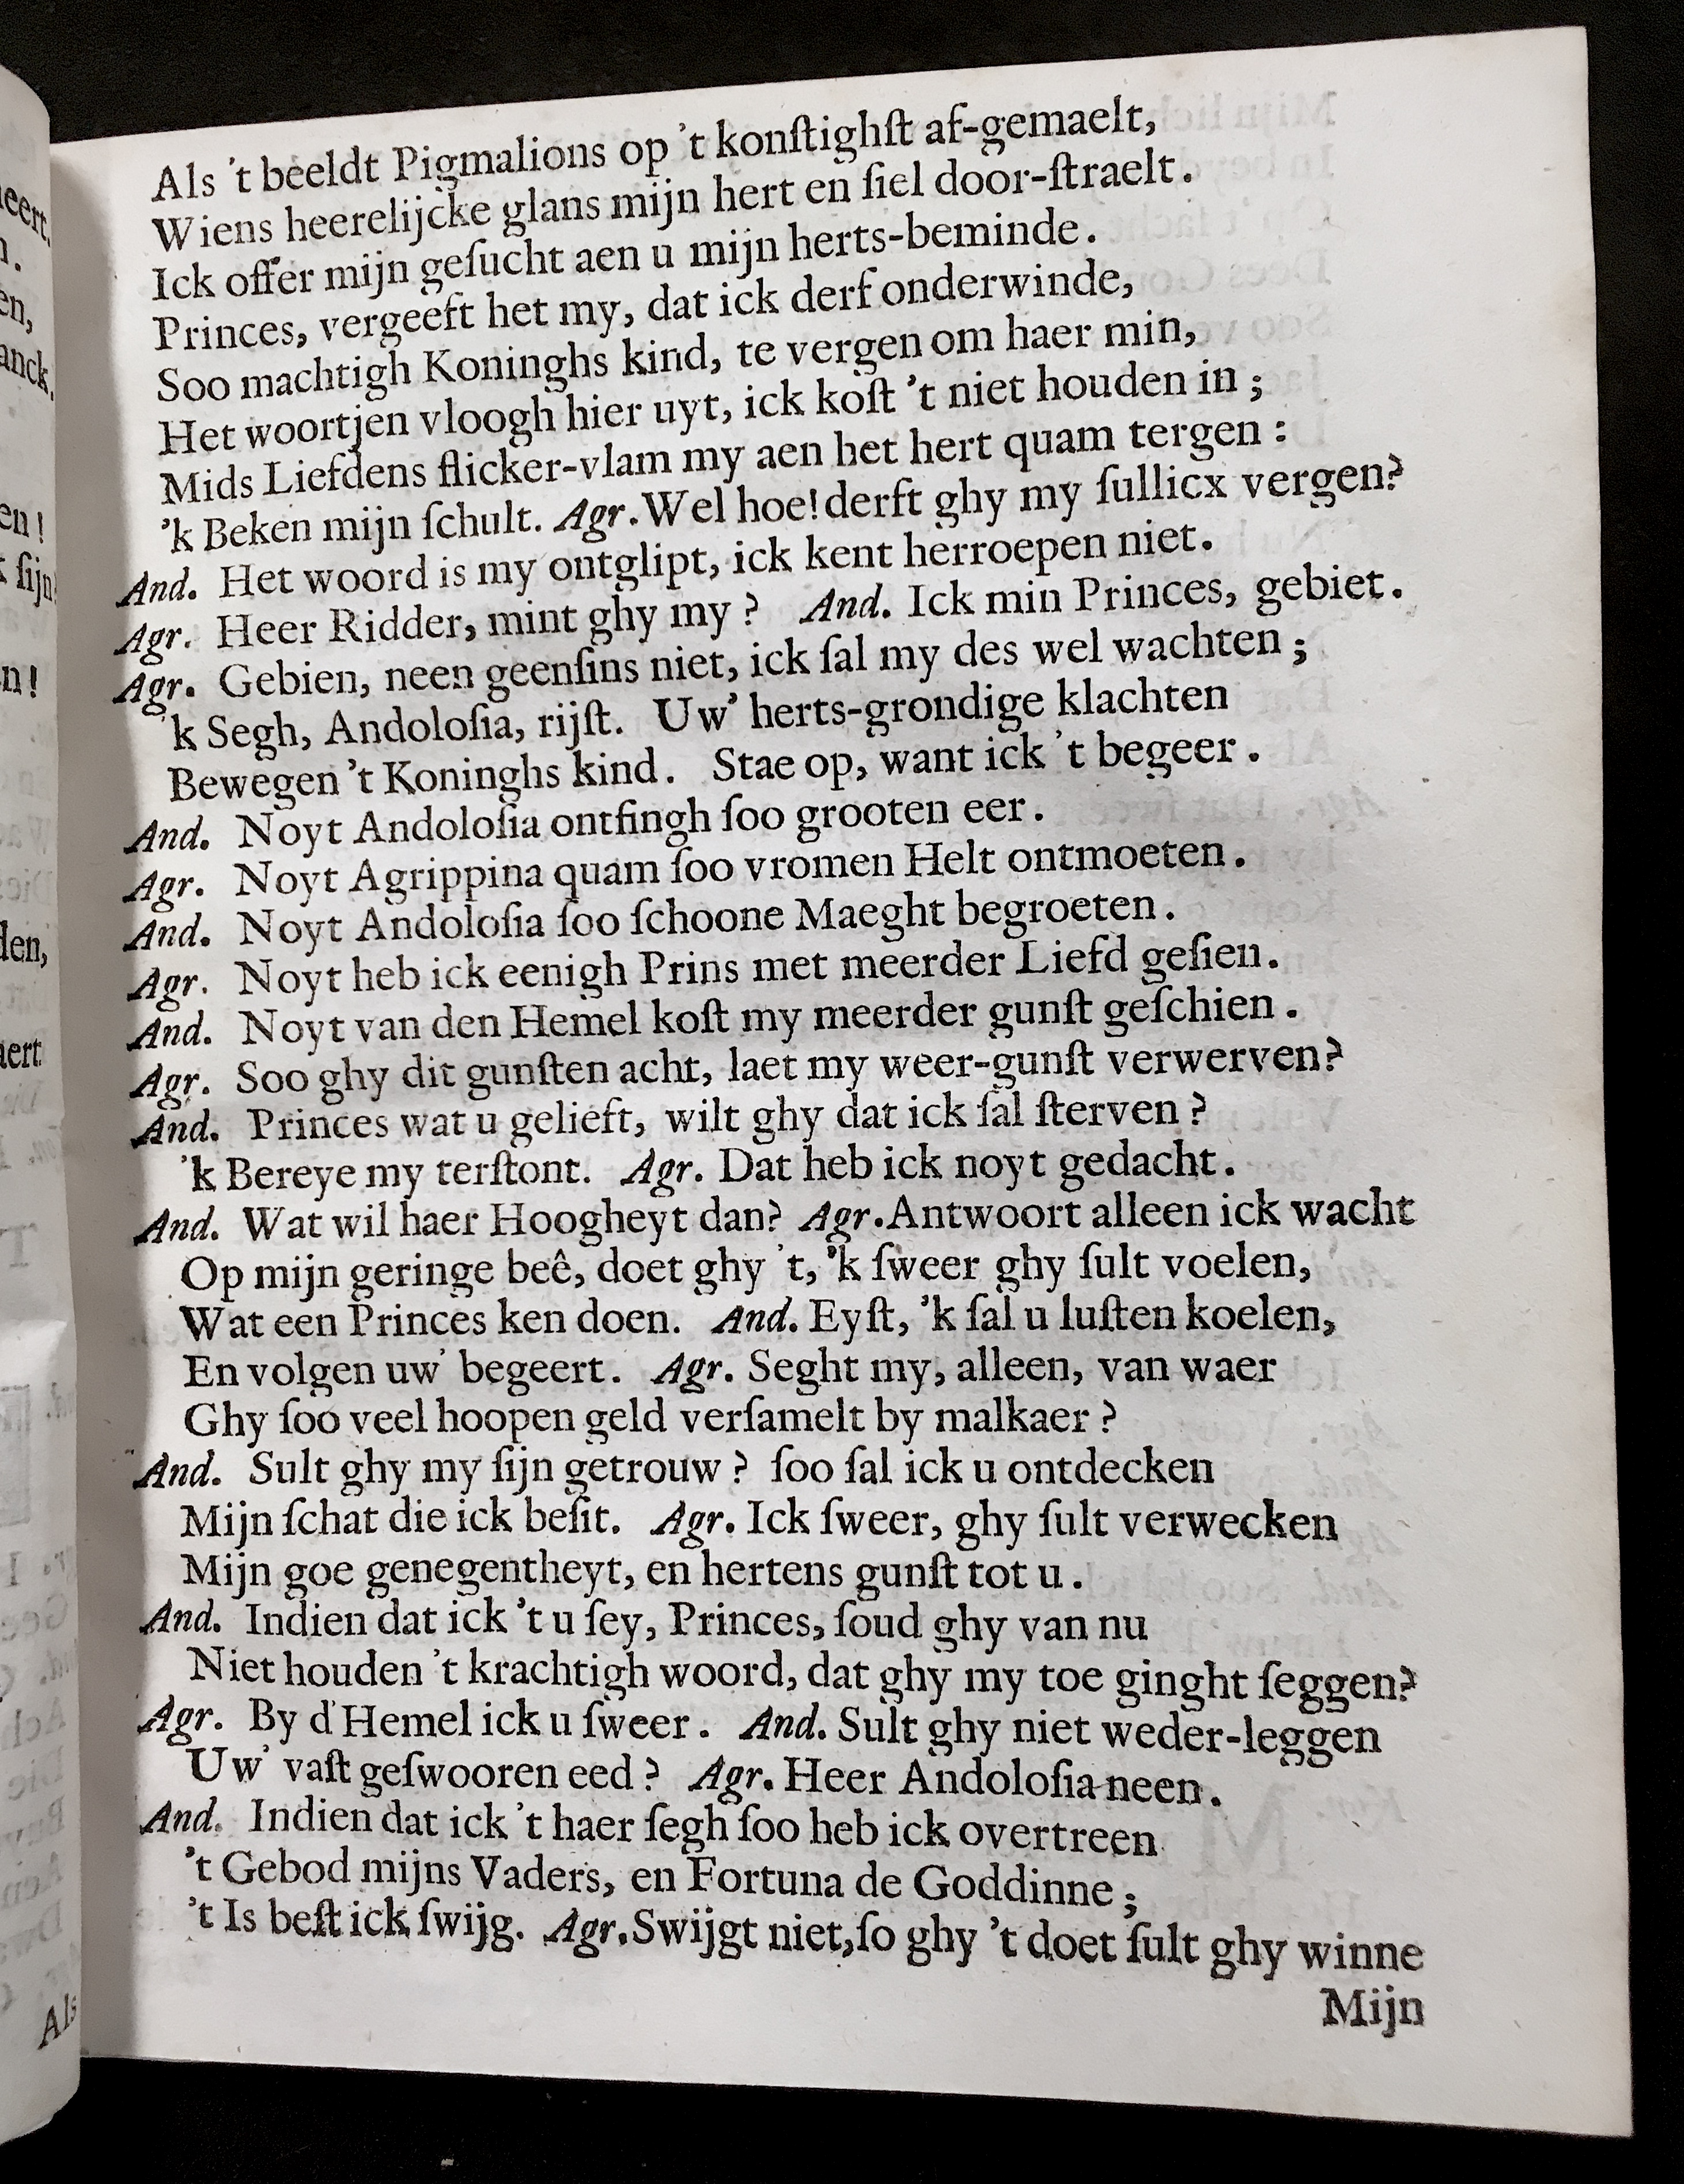 Als 't beeldt Pigmalions op 't konſtighſt af-gemaelt,
Wiens heerelijcke glans mijn hert en ſiel door-ſtraelt.
Ick offer mijn geſucht aen u mijn herts-beminde.
Princes, vergeeft het my, dat ick derf onderwinde,
Soo machtigh Koninghs kind, te vergen om haer min,
Het woortjen vloogh hier uyt, ick koſt 't niet houden in ;
Mids Liefdens flicker-vlam my aen het hert quam tergen :
'k Beken mijn ſchult. Agr. Wel hoe! derft ghy my ſullicx vergen?
And. Het woord is my ontglipt, ick kent herroepen niet.
Agr. Heer Ridder, mint ghy my ? And. Ick min Princes, gebiet.
Agr. Gebien, neen geenſins niet, ick ſal my des wel wachten ;
'k Segh, Andoloſia, rijſt. Uw' herts-grondige klachten
Bewegen 't Koninghs kind. Stae op, want ick 't begeer.
And. Noyt Andoloſia ontfingh ſoo grooten eer.
Agr. Noyt Agrippina quam ſoo vromen Helt ontmoeten.
And. Noyt Andoloſia ſoo ſchoone Maeght begroeten.
Agr. Noyt heb ick eenigh Prins met meerder Liefd geſien.
And. Noyt van den Hemel koſt my meerder gunſt geſchien.
Agr. Soo ghy dit gunſten acht, laet my weer-gunſt verwerven?
And. Princes wat u gelieft, wilt ghy dat ick ſal ſterven ?
'k Bereye my terſtont. Agr. Dat heb ick noyt gedacht.
And. Wat wil haer Hoogheyt dan? Agr. Antwoort alleen ick wacht
Op mijn geringe beê, doet ghy 't, 'k ſweer ghy ſult voelen,
Wat een Princes ken doen. And. Eyſt, 'k ſal u luſten koelen,
En volgen uw' begeert. Agr. Seght my, alleen, van waer
Ghy ſoo veel hoopen geld verſamelt by malkaer ?
And. Sult ghy my ſijn getrouw ? ſoo ſal ick u ontdecken
Mijn ſchat die ick beſit. Agr. Ick ſweer, ghy ſult verwecken
Mijn goe genegentheyt, en hertens gunſt tot u.
And. Indien dat ick 't u ſey, Princes, ſoud ghy van nu
Niet houden 't krachtigh woord, dat ghy my toe ginght ſeggen?
Agr. By d'Hemel ick u ſweer. And. Sult ghy niet weder-leggen
Uw' vaſt geſwooren eed ? Agr. Heer Andoloſia neen.
And. Indien dat ick 't haer ſegh ſoo heb ick overtreen
't Gebod mijns Vaders, en Fortuna de Goddinne ;
't Is beſt ick ſwijg. Agr. Swijgt niet, ſo ghy 't doet ſult ghy winne
Mijn